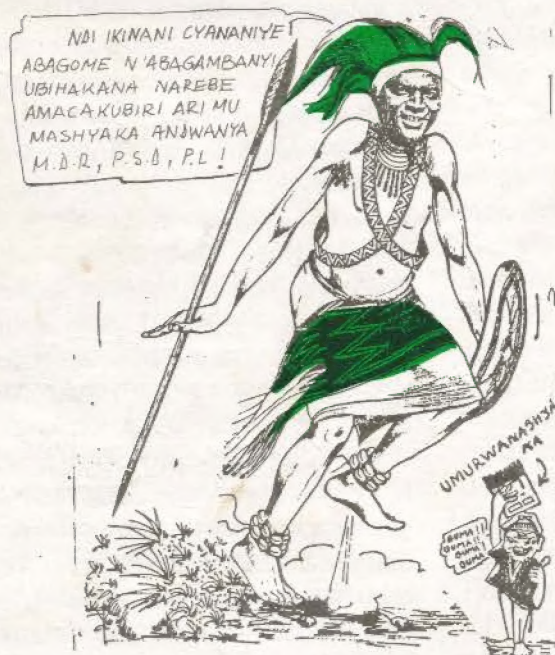 NDI IKINANI CYANANIYE
ABAGOME N'ABAGAMBANYI
UBIHAKANA NAREBE
AMACAKUBIRI ARI MU
MASHYAKA ANDWANYA
M.D.R, P.S.D, P.L !
UMURWANASHYA
KA